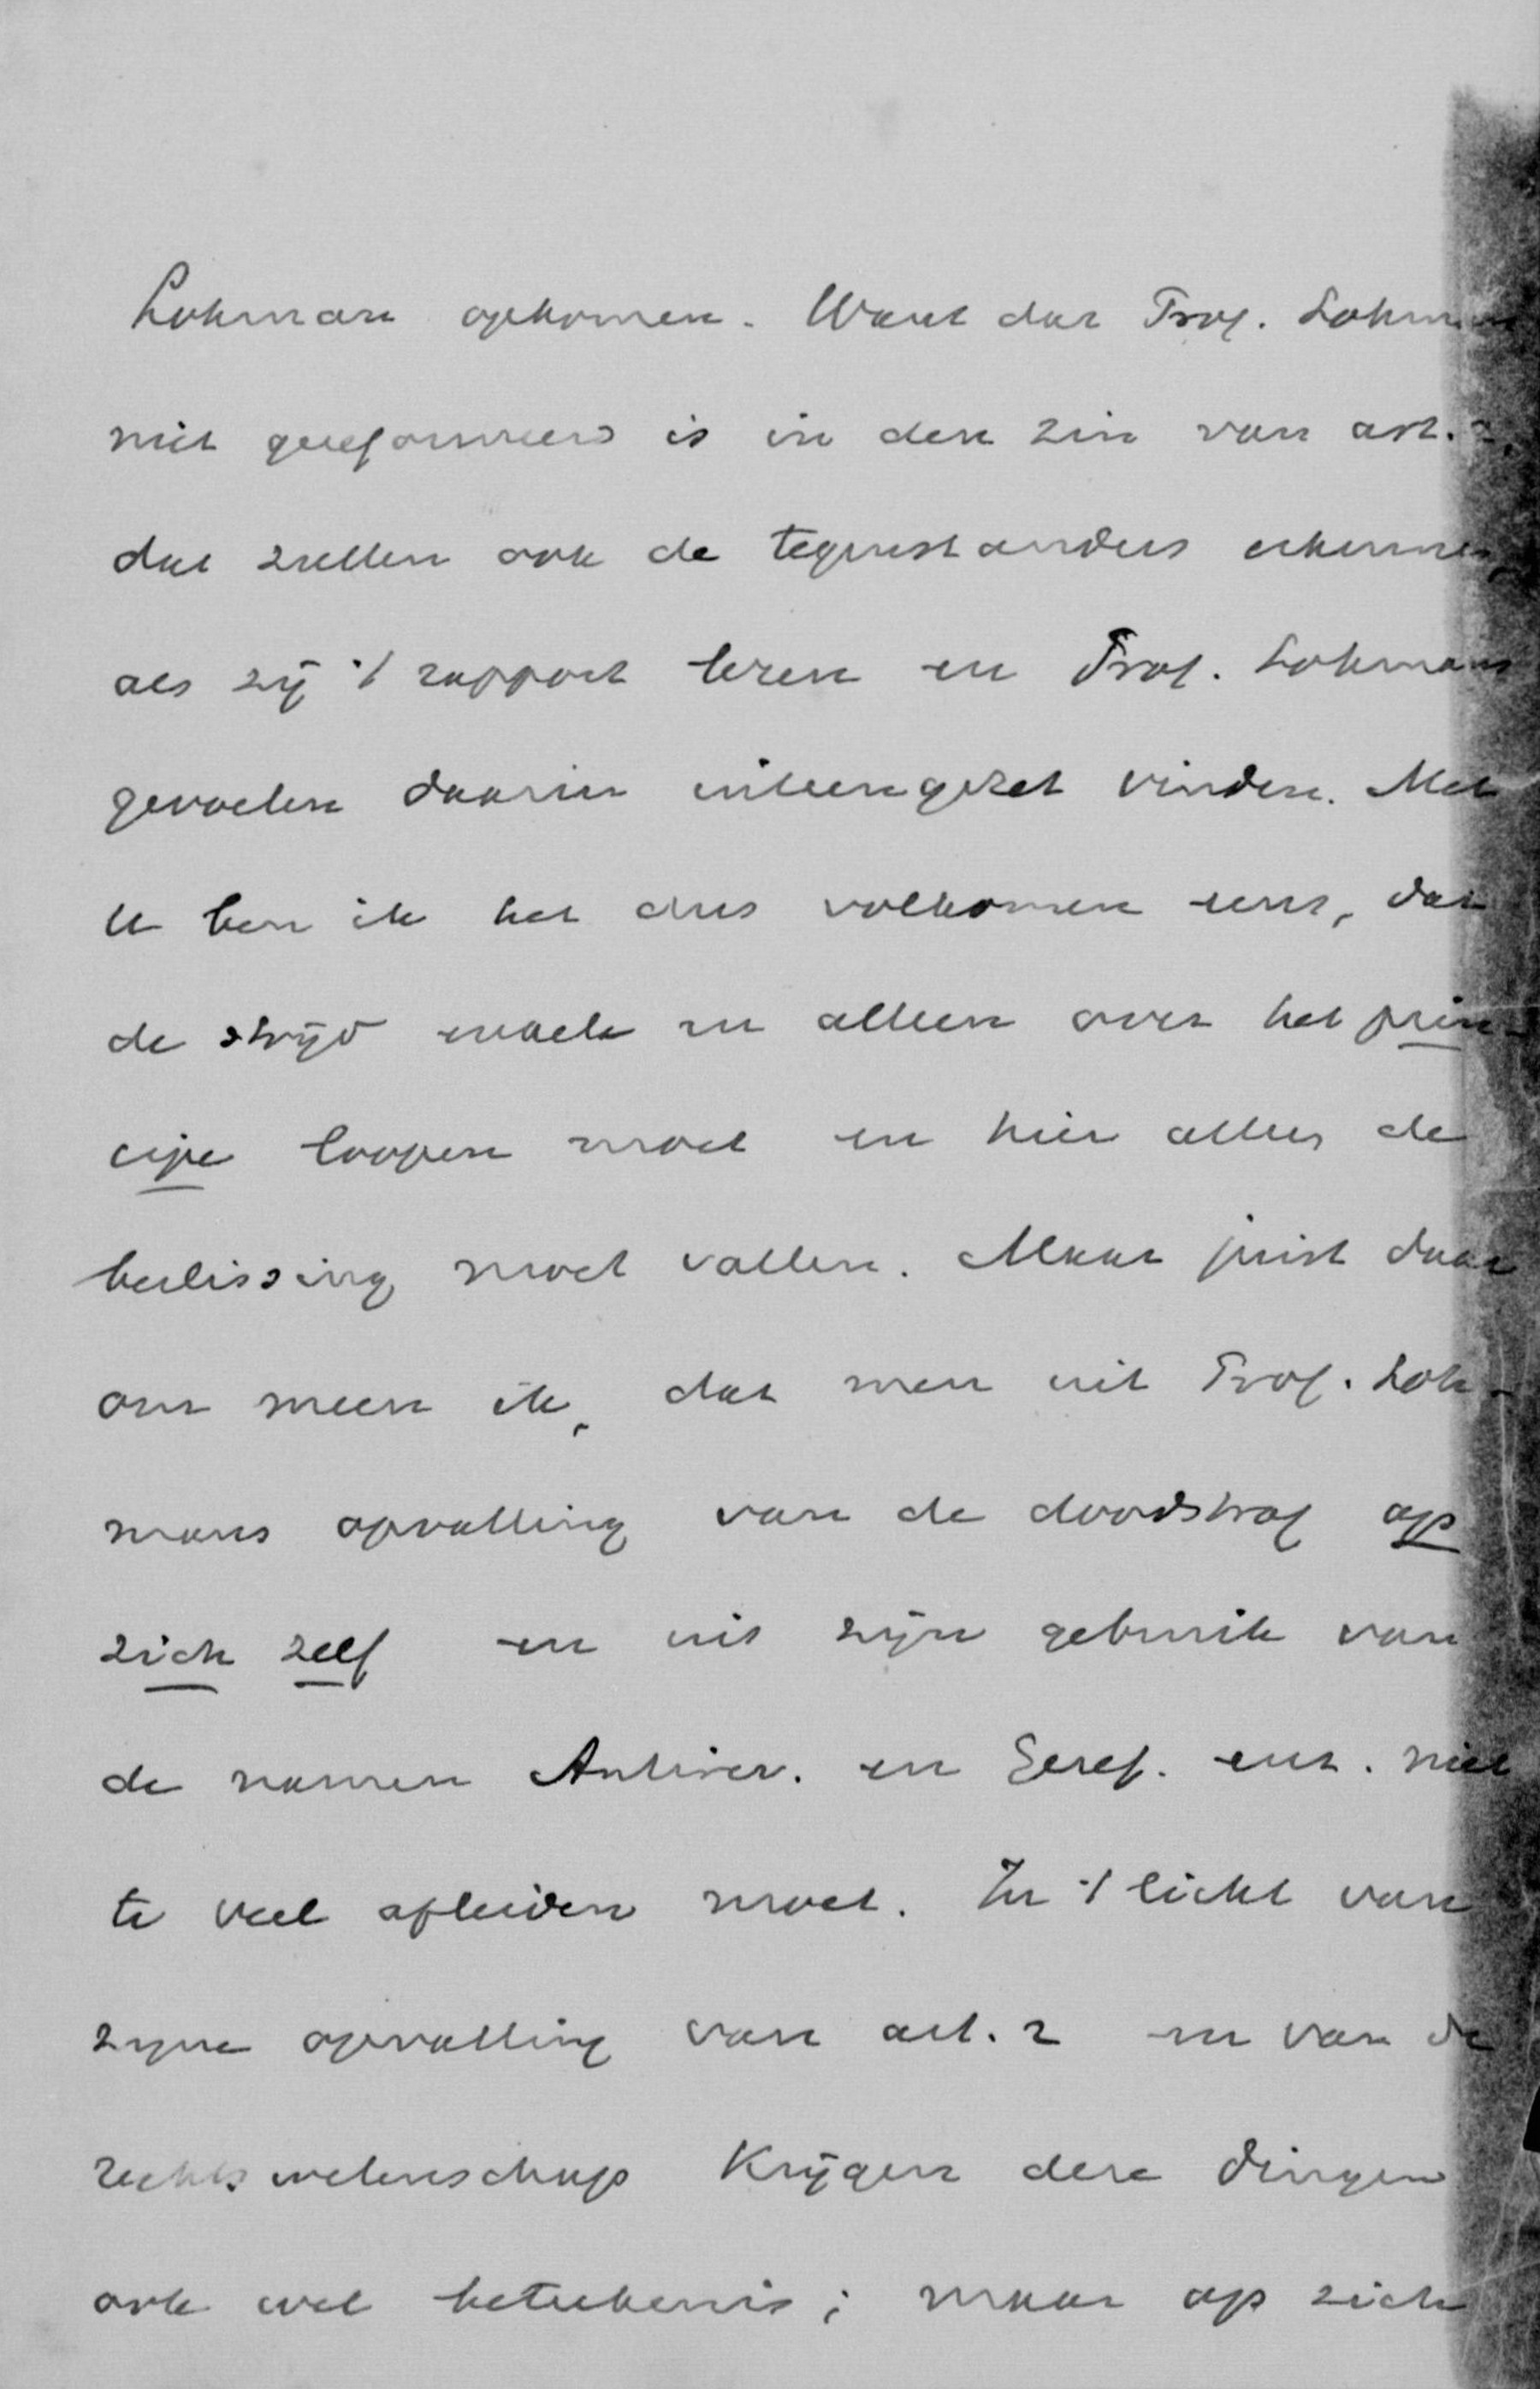 Lohman opkomen. Want dat Prof. Lohman
niet gereformeerd is in den zin van art. 2,
dat zullen ook de tegenstanders erkennen,
als zij 't rapport lezen en Prof. Lohmans
gevoelen daarin uiteengezet vinden. Met
U ben ik het dus volkomen eens, dat
de strijd enkel en alleen over het prin-
cipe loopen moet en hier alleen de
beslissing moet vallen. Maar juist daar
om meen ik, dat men uit Prof. Loh-
mans opvatting van de doodstraf op
zich zelf en uit zijn gebruik van
de namen Antirev. en Geref. enz. niet
te veel afleiden moet. In 't licht van
zijne opvatting van art. 2 en van de
rechtswetenschap krijgen deze dingen
ook wel beteekenis; maar op zich